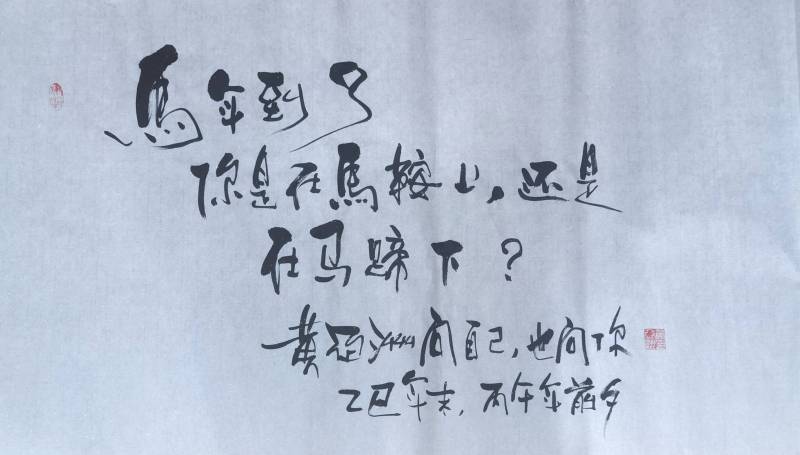 馬年到了
你是在馬鞍上，还是
在马蹄下？
黄石洲问自己，也问你
乙巳年末，丙午年前夕